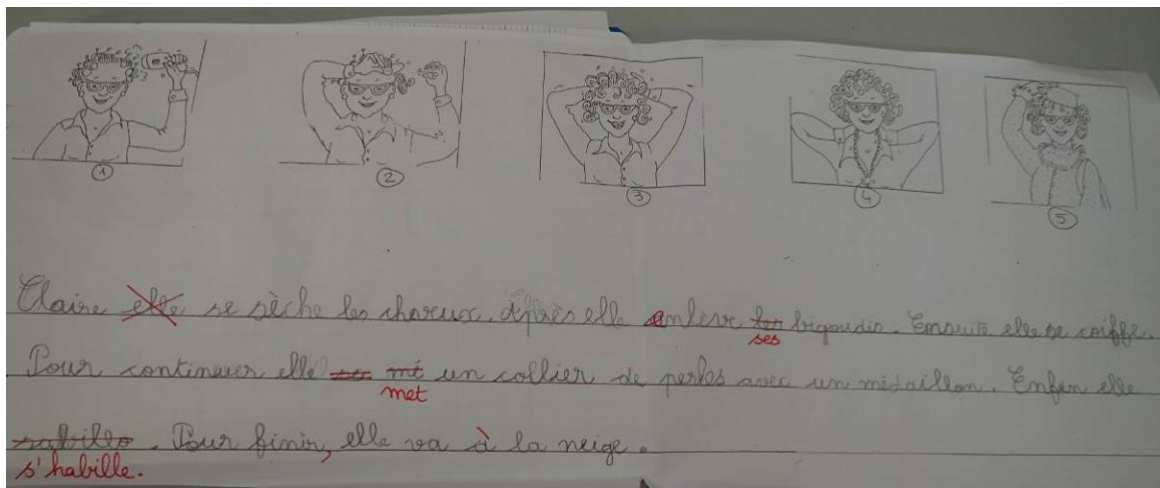 1 2 3 4 5
Claire elle se sèche les cheveux. Après elle enlève les bigoudis. Ensuite elle se coiffe.
ses
Pour continuer elle se mé un collier de perles avec un médaillon. Enfin elle
met
rabille. Pour finir, elle va à la neige.
s'habille.